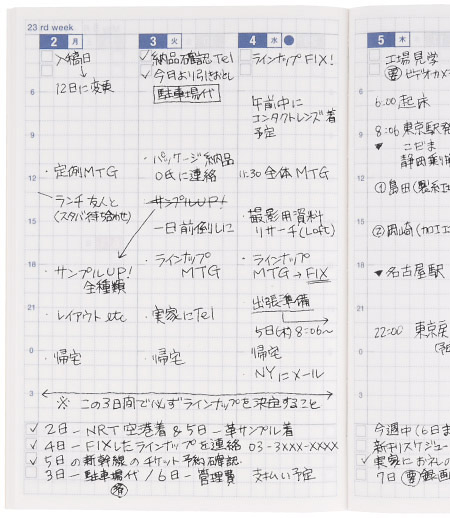 23 rd week
2 月
入稿日
↓
12日に変更
・定例MTG
ランチ 友人と
(スタバ待ち合わせ)
・サンプルUP!
全種類
・レイアウト etc
・帰宅
3 火
✓納品確認Tel
✓今日より引きおとし
駐車場代
・パッケージ納品
O氏に連絡
サンプルUP!
一日前倒しに
・ラインナップ
MTG
・実家にTel
・帰宅
4 水
ラインナップFIX!
午前中に
コンタクトレンズ着
予定
11:30 全体MTG
・撮影用資料
リサーチ(Loft)
・ラインナップ
MTG→FIX
出張準備
5日(木) 8:06〜
帰宅
・NYにメール
5 木
工場見学
要 ビデオカメ
6:00 起床
8:06 東京駅発
▼ こだま
静岡乗り
①島田(製糸工
②岡崎(加工工
▼名古屋駅
22:00 東京戻
6
9
12
15
18
21
0
3
※ この3日間で必ずラインナップを決定すること
✓ 2日 − NRT 空港着 & 5日 − 革サンプル着
✓ 4日 − FIXしたラインナップを連絡 03-3XXX-XXXX
✓ 5日の新幹線のチケット予約確認
3日 − 駐車場代 / 6日 − 管理費 支払い予定
今週中(6日ま
新刊スケジュー
✓実家にお礼の
7日 要 銀画